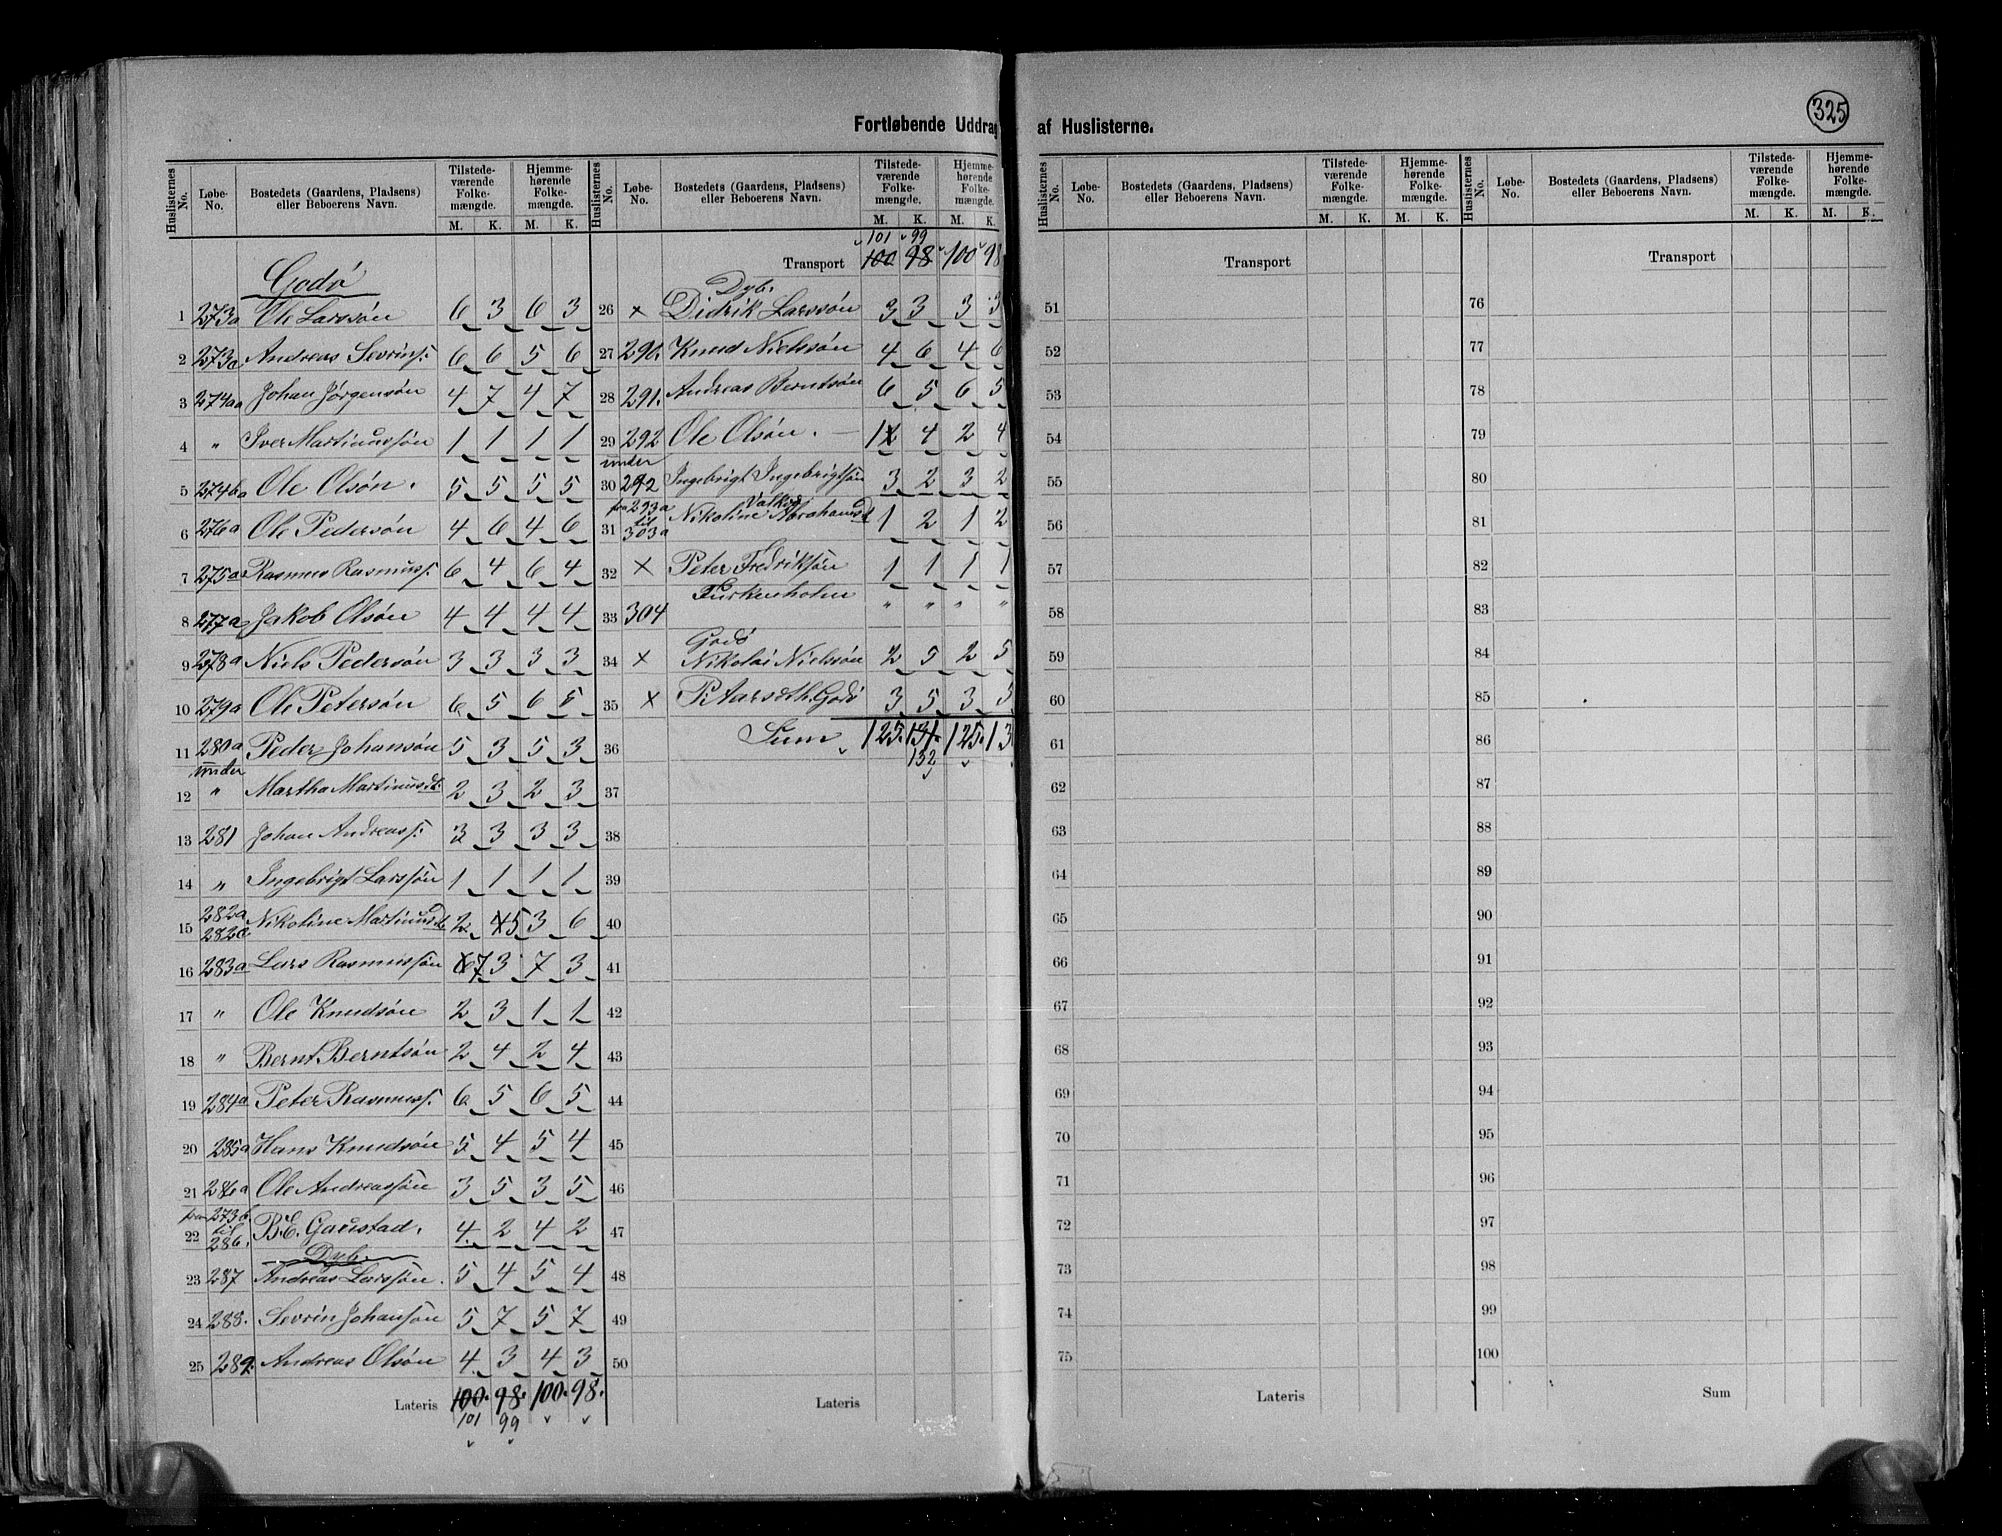 325
Fortløbende Uddrag af Huslisterne.
Huslisternes No. Løbe-No. Bostedets (Gaardens, Pladsens) eller Beboerens Navn. Tilstedeværende Folkemængde. M. K. Hjemmehørende Folkemængde. M. K.
Godø
1 273a Ole Larssøn 6 3 6 3
2 273a Andreas Sevrins: 6 6 5 6
3 274aa Johan Jørgensøn 4 7 4 7
4 " Iver Martinussøn 1 1 1 1
5 274ba Ole Olsøn. 5 5 5 5
6 276a Ole Pedersøn 4 6 4 6
7 275a Rasmus Rasmuss: 6 4 6 4
8 277a Jakob Olsøn 4 4 4 4
9 278a Niels Pedersøn 3 3 3 3
10 279a Ole Petersøn 6 5 6 5
11 280a Peder Johansøn 5 3 5 3
under
12 " Martha Martinusdt: 2 3 2 3
13 281 Johan Andreass: 3 3 3 3
14 " Ingebrigt Larssøn 1 1 1 1
15 282a 282c Nikoline Martinusdt 2 4 5 3 6
16 283a Lars Rasmussøn 6 7 3 7 3
17 " Ole Knudsøn 2 3 1 1
18 " Bernt Berntsøn 2 4 2 4
19 284a Peter Rasmuss: 6 5 6 5
20 285a Hans Knudsøn 5 4 5 4
21 286a Ole Andreassøn 3 5 3 5
22 fra 273b til 286. B.E. Garstad. 4 2 4 2
Dyb.
23 287 Andreas Larssøn. 5 4 5 4
24 288. Sevrin Johansøn 5 7 5 7
25 289. Andreas Olsøn 4 3 4 3
Lateris 100. 98. 100. 98.
101 99
Huslisternes No. Løbe-No. Bostedets (Gaardens, Pladsens) eller Beboerens Navn. Tilstedeværende Folkemængde. M. K. Hjemmehørende Folkemængde. M. K.
101 99
Transport 100 98 100 98
Dyb.
26 x Didrik Larssøn 3 3 3 3
27 290. Knud Nielssøn 4 6 4 6
28 291. Andreas Berntsøn 6 5 6 5
29 292 Ole Olsøn. 1 4 2 4
under
30 292 Ingebrigt Ingebrigtsøn 3 2 3 2
Valkvæ
31 fra 293a til 303a Nikoline Abrahamsdt 1 2 1 2
32 x Peter Fredriksøn 1 1 1 1
33 304 Furkenholm " " " "
Godø
34 x Nikolai Nielssøn 2 5 2 5
35 x P: Aarseth. Godø 3 5 3 5
36 Sum 125. 131. 125. 13
132
37
38
39
40
41
42
43
44
45
46
47
48
49
50
Lateris
Huslisternes No. Løbe-No. Bostedets (Gaardens, Pladsens) eller Beboerens Navn. Tilstedeværende Folkemængde. M. K. Hjemmehørende Folkemængde. M. K.
Transport
51
52
53
54
55
56
57
58
59
60
61
62
63
64
65
66
67
68
69
70
71
72
73
74
75
Lateris
Huslisternes No. Løbe-No. Bostedets (Gaardens, Pladsens) eller Beboerens Navn. Tilstedeværende Folkemængde. M. K. Hjemmehørende Folkemængde. M. K.
Transport
76
77
78
79
80
81
82
83
84
85
86
87
88
89
90
91
92
93
94
95
96
97
98
99
100
Sum